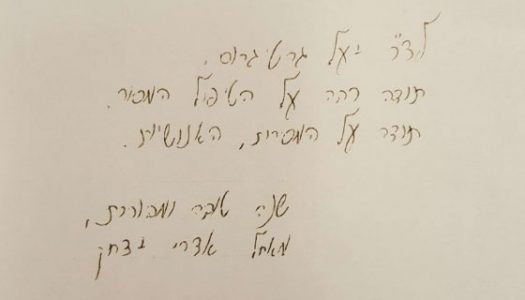 לד"ר יעל גרטי גרוס,
תודה רבה על הטיפול המסור.
תודה על המסירות, האנושיות.
שנה טובה ומבורכת,
מאחל אדרי יצחק